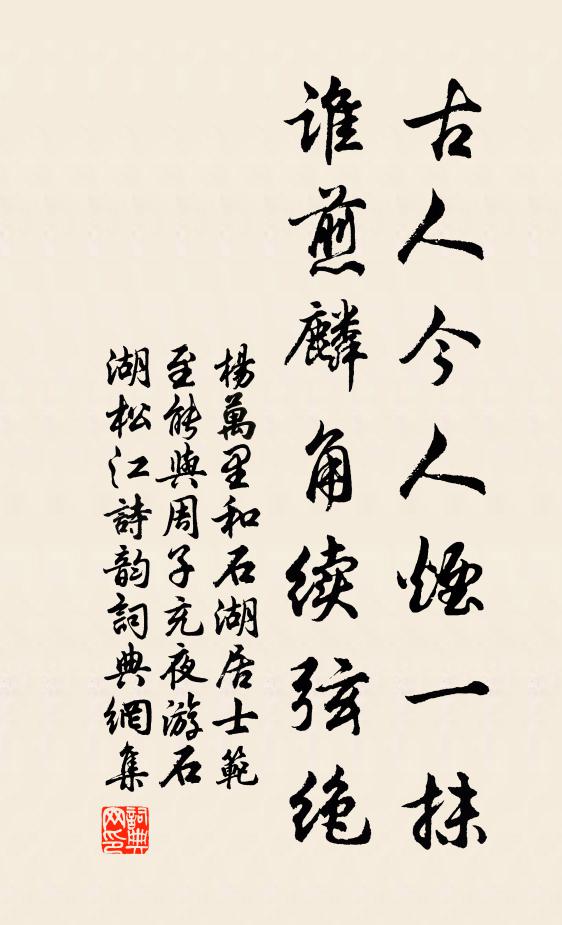 古人今人煙一抹
谁煎麟角续弦绝
楊萬里和石湖居士範
至能與周子充夜游石
湖松江詩韵詞典網集
詞典
网印